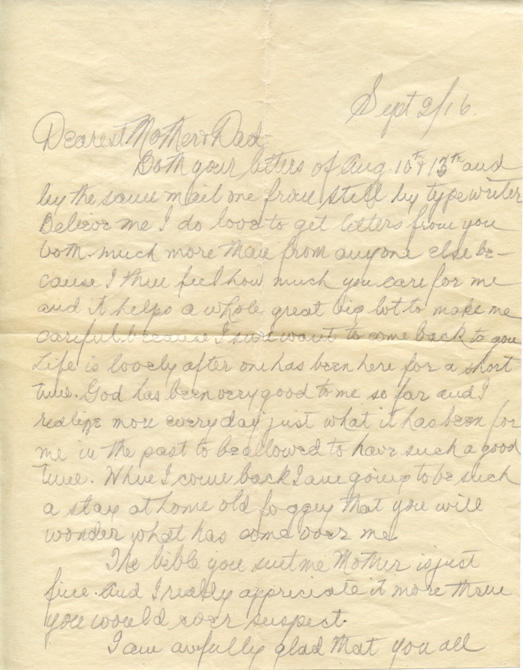 Sept 2/16.
Dearest Mother & Dad
Both your letters of Aug 10th & 13th and
by the same mail one from still by typewriter
Believe me I do love to get letters from you
both much more than from anyone else be-
cause I then feel how much you care for me
and it helps a whole great big lot to make me
careful because I sure want to come back to you
Life is lovely after one has been here for a short
time. God has been very good to me so far and I
realize more every day just what it has been for
me in the past to be allowed to have such a good
time. When I come back I am going to be such
a stay at home old foggey that you will
wonder what has come over me.
The bible you sent me Mother is just
fine and I really appreciate it more than
you would ever suspect.
I am awfully glad that you all